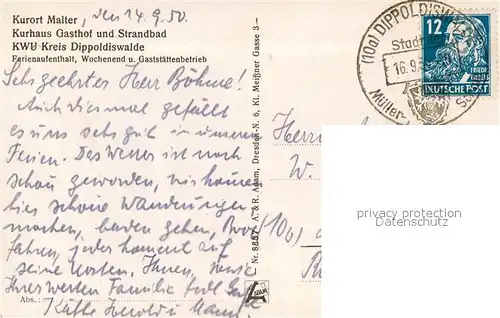 Kurort Malter, den 14.9.50.
Kurhaus Gasthof und Strandbad
KWU Kreis Dippoldiswalde
Ferienaufenthalt, Wochenend u. Gaststättenbetrieb
Sehr geehrter Herr Böhme!
Auch diesmal gefällt
es uns sehr gut in unseren
Ferien. Das Wetter ist noch
schön geworden, wir können
hier schöne Wanderungen
machen, baden gehen, Boot
fahren, jeder kommt auf
seine Kosten. Ihnen, sowie
Ihrer werten Familie
Abs.: Käthe u. Mann.
Nr. 8857 A. & R. Adam, Dresden-N. 6, Kl. Meißner Gasse 3
ADAM
Herrn
W.
(10b)
(10a) DIPPOLDISW
Stadt
16.9.
Müller-
12
FRIEDR
ENGELS
DEUTSCHE POST
privacy protection
copyright protection